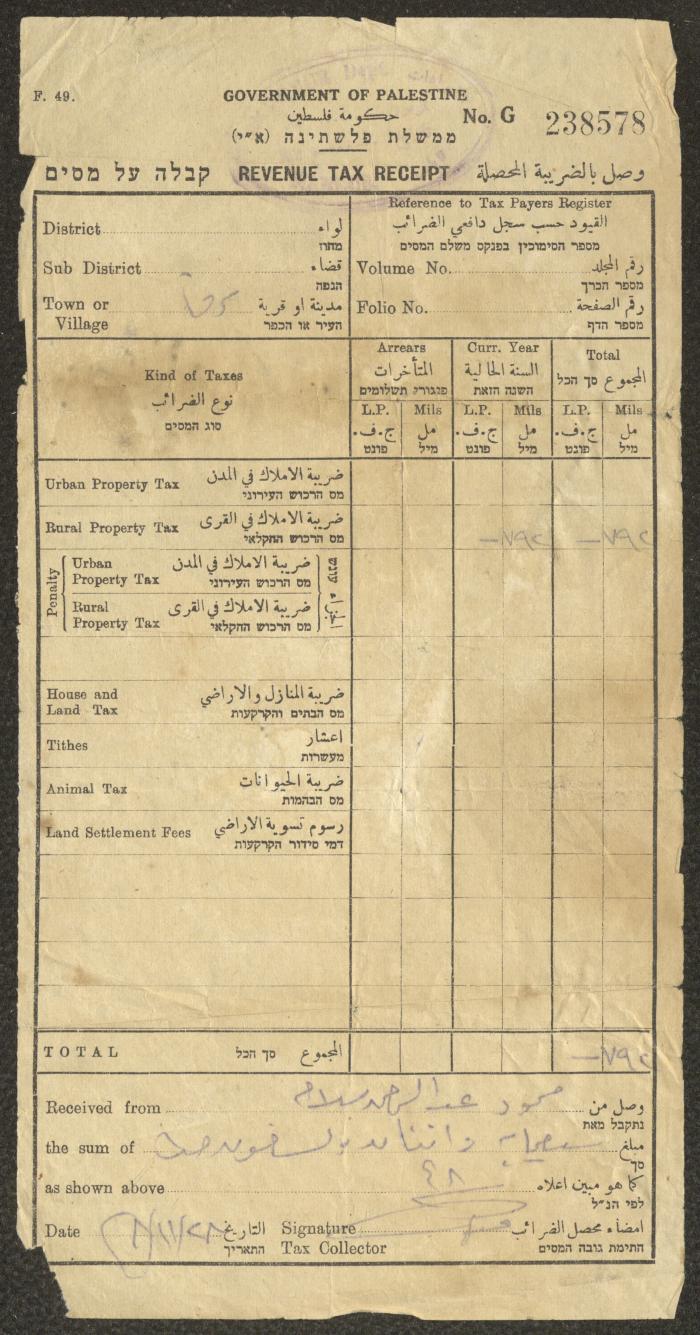 F. 49.
GOVERNMENT OF PALESTINE
حكومة فلسطين
No. G 238578
ממשלת פלשתינה (א״י)
קבלה על מסים REVENUE TAX RECEIPT وصل بالضريبة المحصلة
District لواء
מחוז
Sub District قضاء
הנפה
Town or Village مدينة او قرية
העיר או הכפר
Reference to Tax Payers Register
القيود حسب سجل دافعي الضرائب
מספר הסימוכין בפנקס משלם המסים
Volume No. رقم المجلد
מספר הכרך
Folio No. رقم الصفحة
מספר הדף
Kind of Taxes
نوع الضرائب
סוג המסים
Arrears
المتأخرات
פיגורי תשלומים
Curr. Year
السنة الحالية
השנה הזאת
Total
المجموع סך הכל
L.P. Mils L.P. Mils L.P. Mils
ج.ف. مل ج.ف. مل ج.ف. مل
פונט מיל פונט מיל פונט מיל
Urban Property Tax ضريبة الاملاك في المدن
מס הרכוש העירוני
Rural Property Tax ضريبة الاملاك في القرى
מס הרכוש החקלאי
٧٩٢ ٧٩٢
Penalty
Urban Property Tax ضريبة الاملاك في المدن
מס הרכוש העירוני
Rural Property Tax ضريبة الاملاك في القرى
מס הרכוש החקלאי
עונש
House and Land Tax ضريبة المنازل والاراضي
מס הבתים והקרקעות
Tithes اعشار
מעשרות
Animal Tax ضريبة الحيوانات
מס הבהמות
Land Settlement Fees رسوم تسوية الاراضي
דמי סידור הקרקעות
TOTAL סך הכל المجموع
٧٩٢
Received from محمود عبد الرحمن وصل من
נתקבל מאת
the sum of مبلغ
סך
as shown above ٤٨ كما هو مبين اعلاه
לפי הנ״ל
Date التاريخ
התאריך
Signature Tax Collector امضاء محصل الضرائب
חתימת גובה המסים